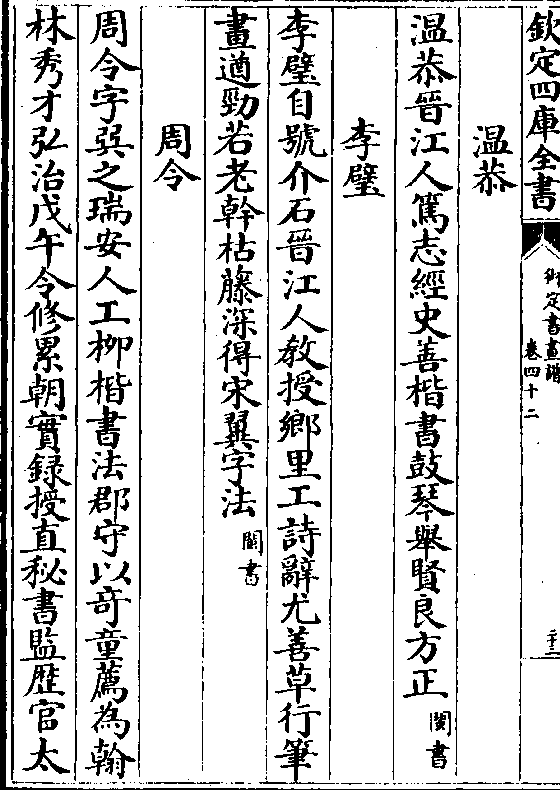 欽定四庫全書
御定書畫譜
卷四十二
二十二
温恭
温恭晉江人篤志經史善楷書鼓琴舉賢良方正閩書
李璧
李璧自號介石晉江人教授鄉里工詩辭尤善草行筆
畫遒勁若老幹枯藤深得宋翼字法閩書
周令
周令字㢲之瑞安人工柳楷書法郡守以竒童薦為翰
林秀才弘治戊午令修累朝實録授直秘書監歴官太